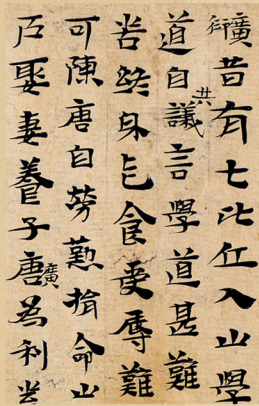 廣昔有七比丘入山學
道自共議言學道甚難
苦終身乞食受辱難
可陳唐自勞懃捐命山
娶妻養子唐廣為利